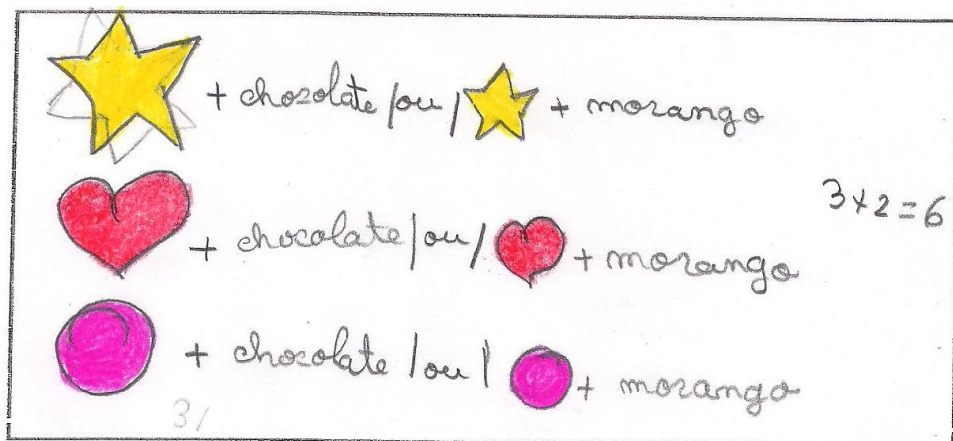 + chocolate /ou/ + morango
3x2=6
+ chocolate /ou/ + morango
+ chocolate /ou/ + morango
3/